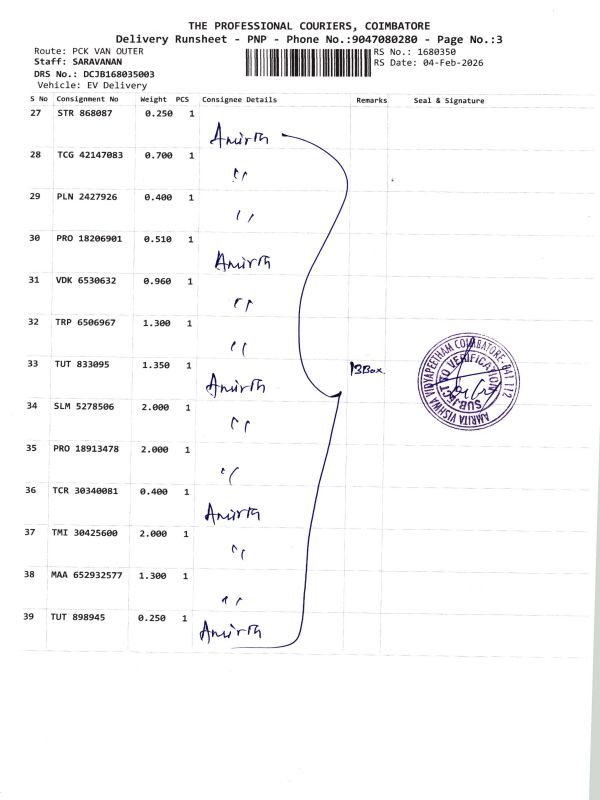 THE PROFESSIONAL COURIERS, COIMBATORE
Delivery Runsheet - PNP - Phone No.:9047080280 - Page No.:3
Route: PCK VAN OUTER
RS No.: 1680350
Staff: SARAVANAN
RS Date: 04-Feb-2026
DRS No.: DCJB168035003
Vehicle: EV Delivery
S No Consignment No Weight PCS Consignee Details Remarks Seal & Signature
27 STR 868087 0.250 1
Amirth
28 TCG 42147083 0.700 1
"
29 PLN 2427926 0.400 1
"
30 PRO 18206901 0.510 1
Amirth
31 VDK 6530632 0.960 1
"
32 TRP 6506967 1.300 1
"
33 TUT 833095 1.350 1
Amirth
13Box.
AMRITA VISHWA VIDYAPEETHAM COIMBATORE-641 112
SUBJECT TO VERIFICATION
34 SLM 5278506 2.000 1
"
35 PRO 18913478 2.000 1
"
36 TCR 30340081 0.400 1
Amirth
37 TMI 30425600 2.000 1
"
38 MAA 652932577 1.300 1
"
39 TUT 898945 0.250 1
Amirth